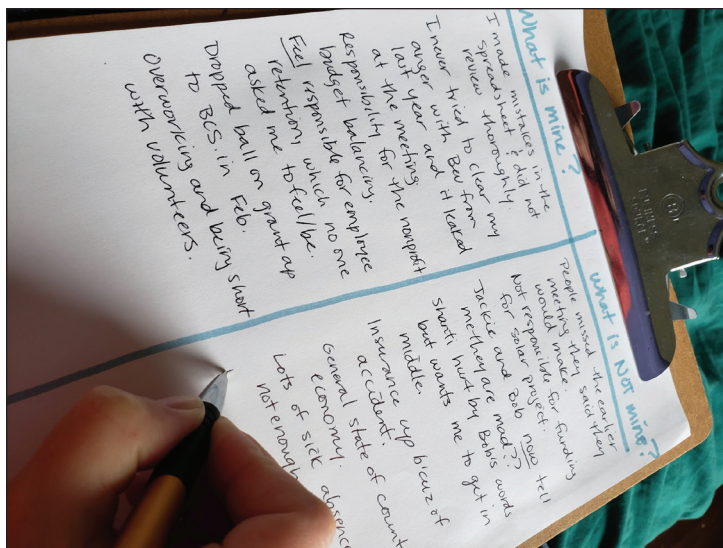 What is mine?
I made mistakes in the
spreadsheet & did not
review thoroughly.
I never tried to clear my
anger with Bev from
last year and it leaked
at the meeting.
Responsibility for the nonprofit
budget balancing.
Feel responsible for employee
retention, which no one
asked me to feel/be.
Dropped ball on grant app
to BCS in Feb.
Overworking and being short
with volunteers.
what is NOT mine?
People missed the earlier
meeting they said they
would make.
Not responsible for funding
for solar project.
Jackie and Bob now tell
me they are mad??
Shanti hurt by Bob's words
but wants me to get in
middle.
Insurance up bicuz of
accident.
General state of count
economy.
Lots of sick absence
not enough